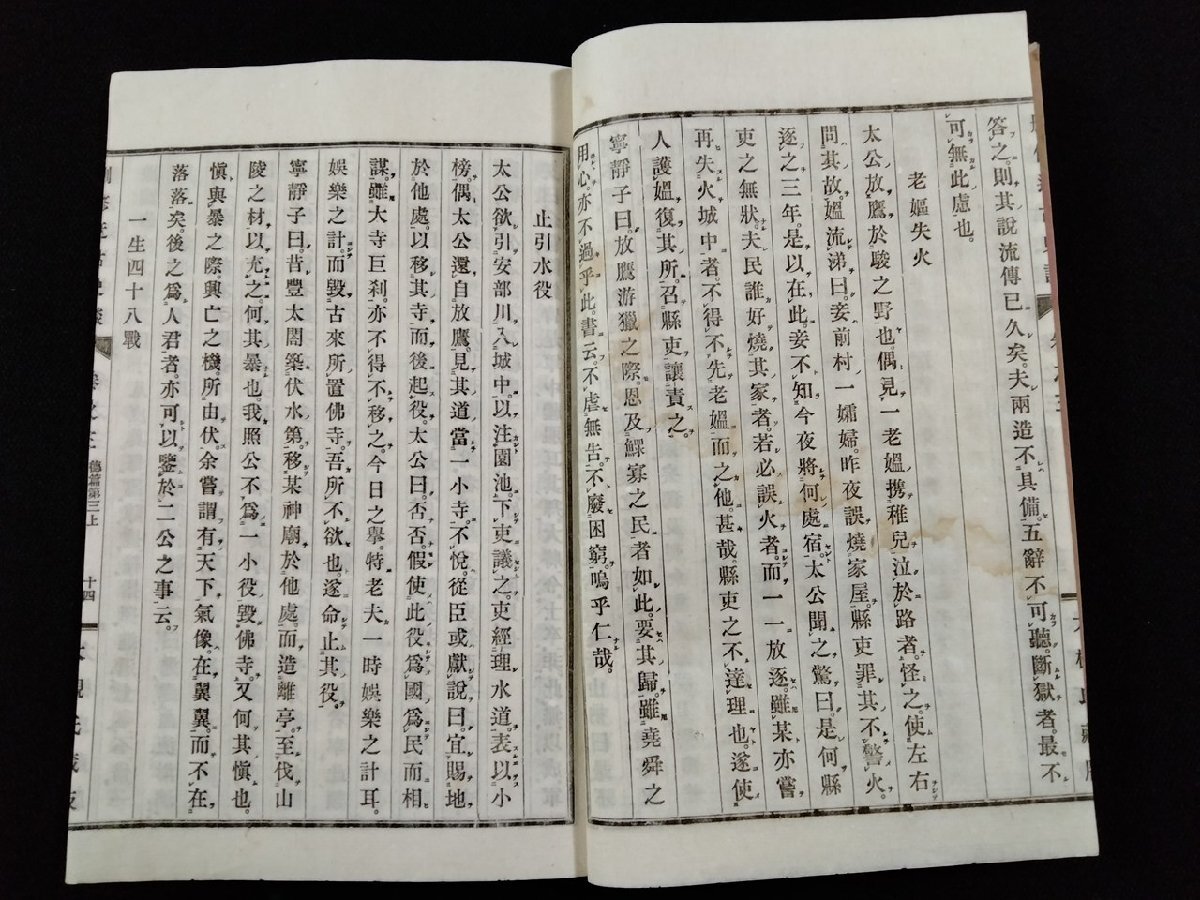 答之。則其說流傳已久矣。夫兩造不具備。五辭不可聽。斷獄者。最不
可無此慮也。
老嫗失火
太公放鷹於駿之野也。偶見一老媼携稚兒泣於路者。怪之。使左右
問其故。媼流涕曰。妾前村一孀婦。昨夜誤燒家屋。縣吏罪其不警火。
逐之三年。是以在此。妾不知今夜將何處宿。太公聞之驚曰。是何縣
吏之無狀。夫民誰好燒其家者。若必誤火者。而一一放逐。雖某亦嘗
再失火城中者。不得不先老媼而之他。甚哉。縣吏之不達理也。遂使
人護媼復其所。召縣吏讓責之。
寧靜子曰。放鷹游獵之際。恩及鰥寡之民者如此。要其歸。雖堯舜之
用心。亦不過乎此。書云。不虐無告。不廢困窮。嗚乎仁哉。
止引水役
太公欲引安部川入城中。以注園池。下吏議之。吏經理水道。表以小
榜。偶太公還自放鷹。見其道當一小寺。不悅。從臣或獻說曰。宜賜地
於他處。以移其寺而後起役。太公曰。否否。假使此役爲國爲民而相
謀。雖大寺巨刹。亦不得不移之。今日之擧。特老夫一時娛樂之計耳。
娛樂之計。而毀古來所置佛寺。吾所不欲也。遂命止其役。
寧靜子曰。昔豐太閤築伏水第。移某神廟於他處。而造離亭。至伐山
陵之材。以充之。何其暴也。我照公不爲一小役毀佛寺。又何其愼也。
愼與暴之際。興亡之機。所由伏。余嘗謂有天下氣像。在翼翼。而不在
落落矣。後之爲人君者。亦可以鑒於二公之事云。
一生四十八戰
卷之三
德篇第三上
十四